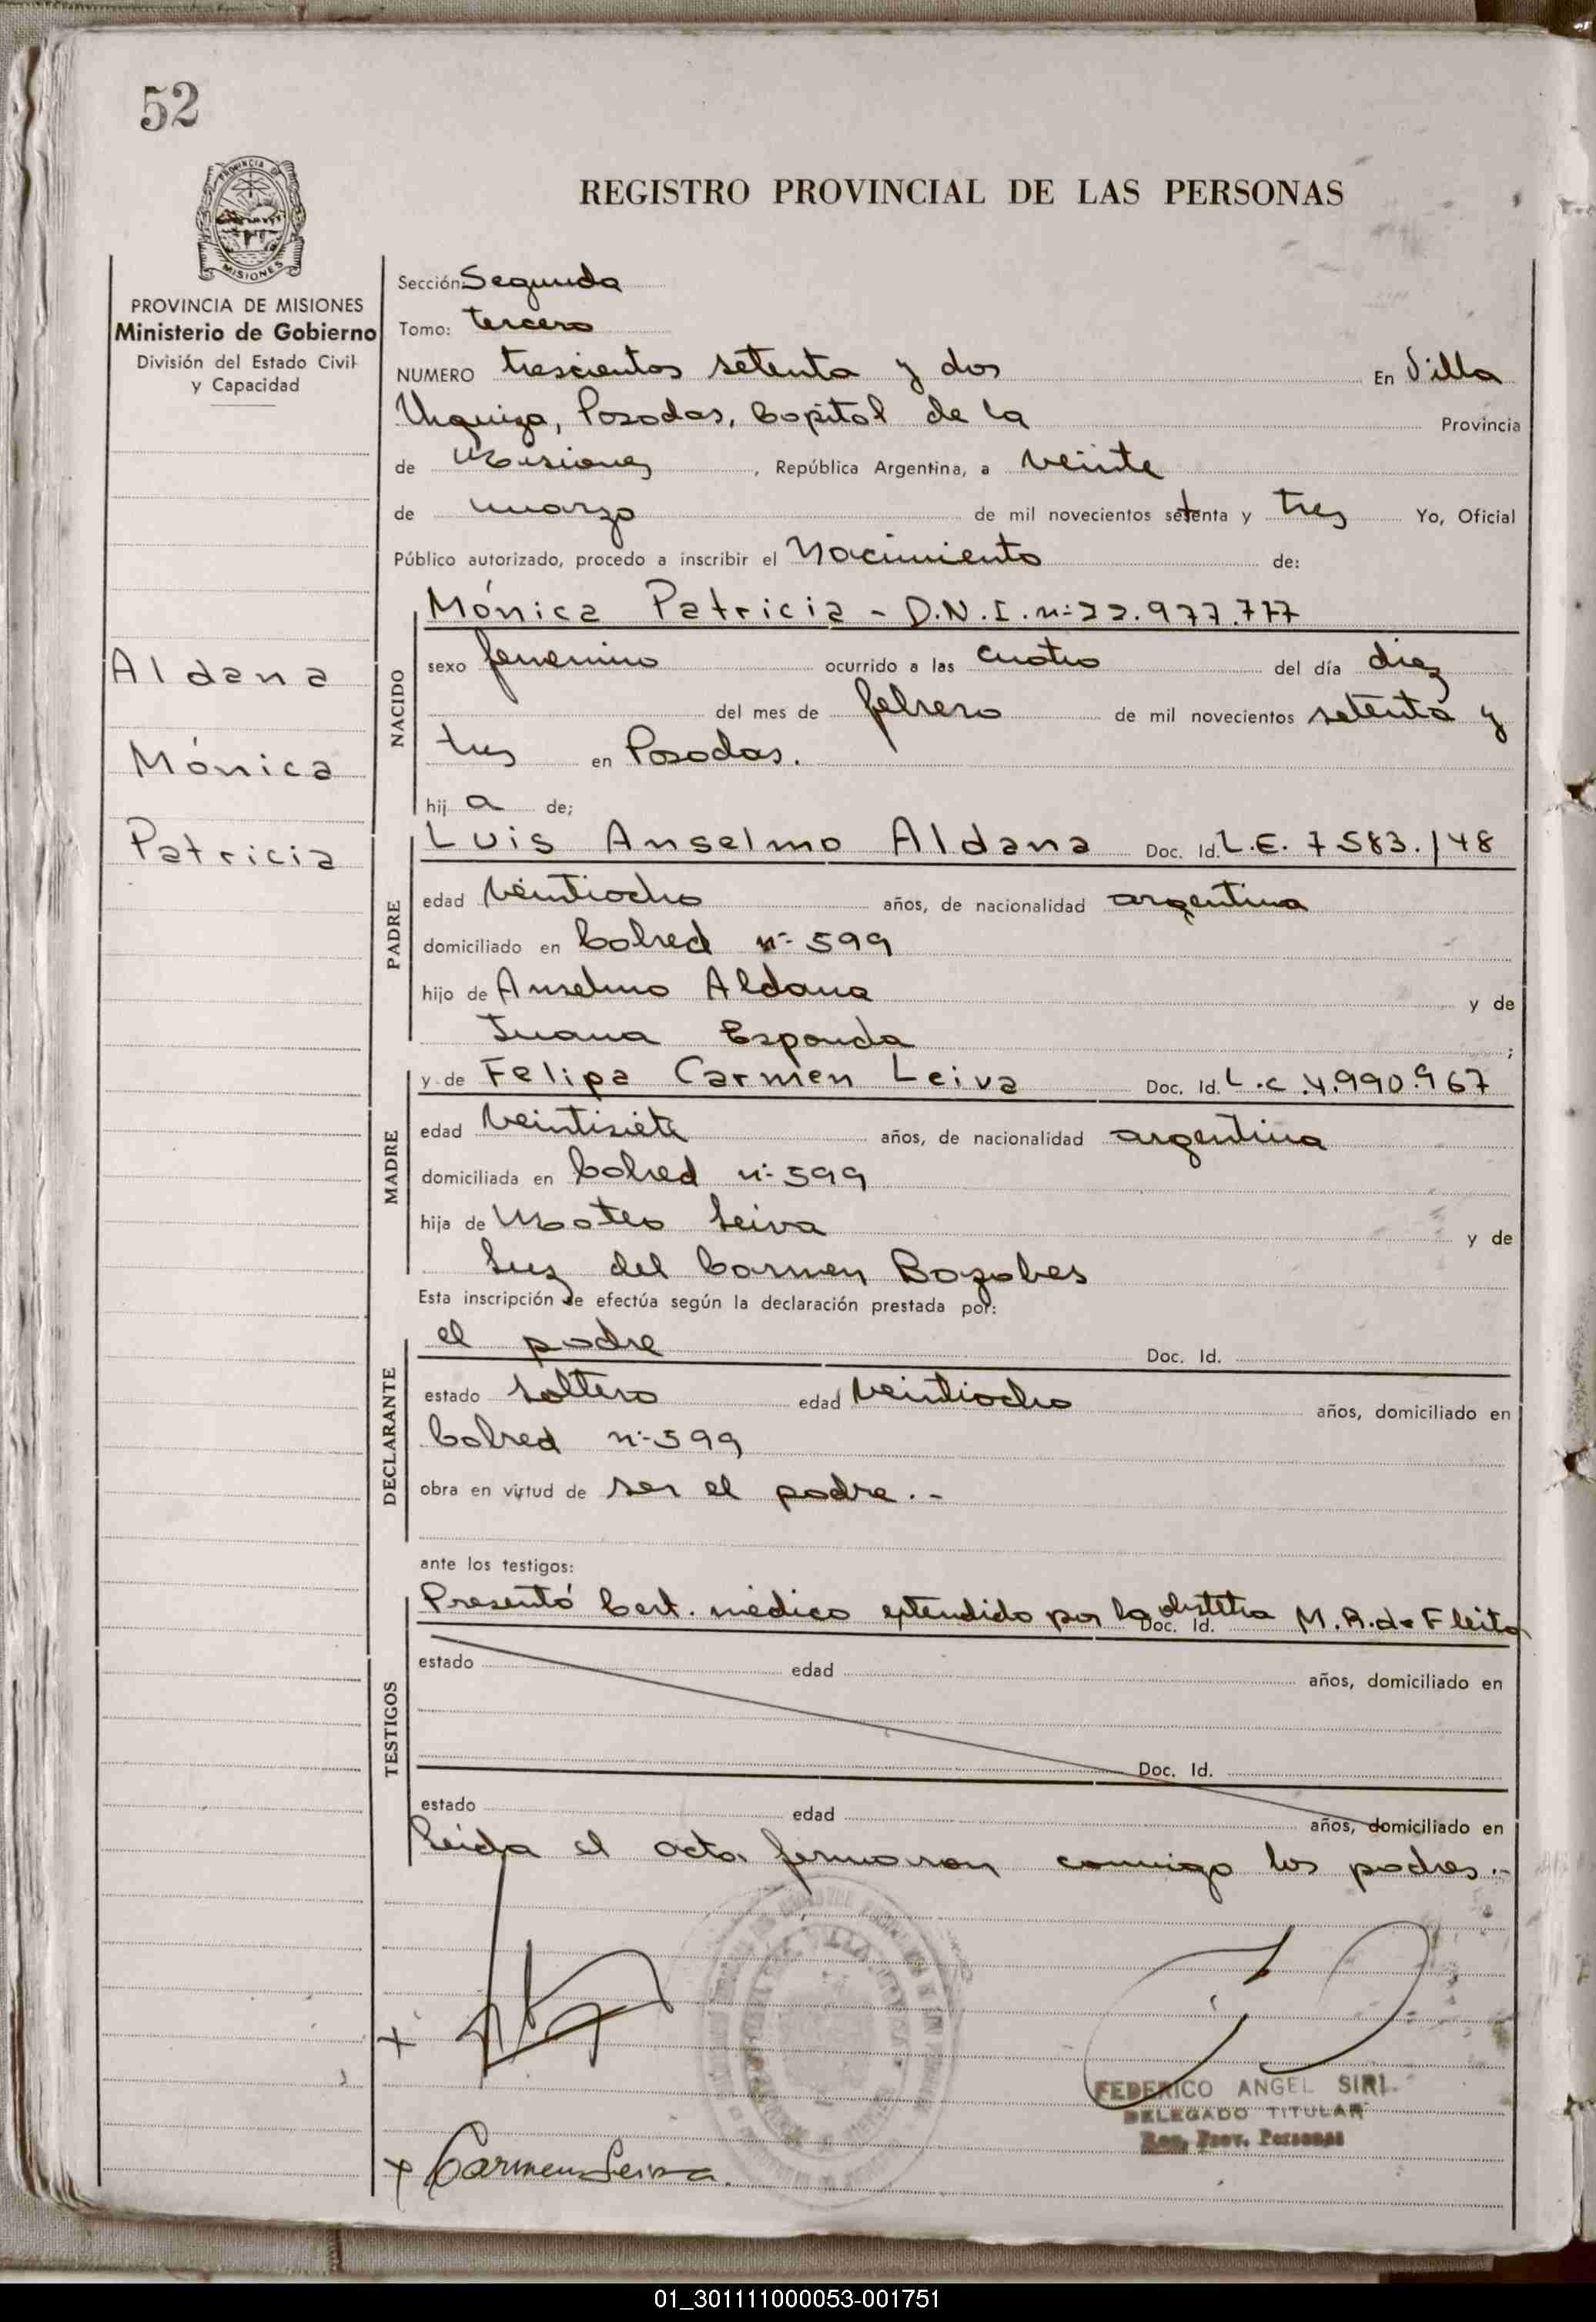 52
PROVINCIA DE
MISIONES
REGISTRO PROVINCIAL DE LAS PERSONAS
PROVINCIA DE MISIONES
Ministerio de Gobierno
División del Estado Civil
y Capacidad
Aldana
Mónica
Patricia
Sección: Segunda
Tomo: tercero
NUMERO trescientos setenta y dos En Villa
Urquiza, Posadas, Capital de la Provincia
de Misiones, República Argentina, a veinte
de marzo de mil novecientos setenta y tres Yo, Oficial
Público autorizado, procedo a inscribir el Nacimiento de:
NACIDO
Mónica Patricia - D.N.I. nº 22.977.777
sexo femenino ocurrido a las cuatro del día diez
del mes de febrero de mil novecientos setenta y
tres en Posadas.
hij a de;
PADRE
Luis Anselmo Aldana Doc. Id. L.E. 7583.148
edad veintiocho años, de nacionalidad argentina
domiciliado en nº 599
hijo de Anselmo Aldana y de
Juana Esponda ;
MADRE
y de Felipa Carmen Leiva Doc. Id. L.C. 4.990.967
edad veintisiete años, de nacionalidad argentina
domiciliada en nº 599
hija de Mateo Leiva y de
Luz del Carmen
Esta inscripción se efectúa según la declaración prestada por:
DECLARANTE
el padre Doc. Id.
estado soltero edad veintiocho años, domiciliado en
nº 599
obra en virtud de ser el padre.-
ante los testigos:
TESTIGOS
Presentó Cert. médico extendido por la obstetra M.R. de Fleita
Doc. Id.
estado edad años, domiciliado en
Doc. Id.
estado edad años, domiciliado en
Leida el acta firmaron conmigo los padres.-
FEDERICO ANGEL SIRI
DELEGADO TITULAR
Reg. Prov. Personas
x
x Carmen Leiva
01_301111000053-001751